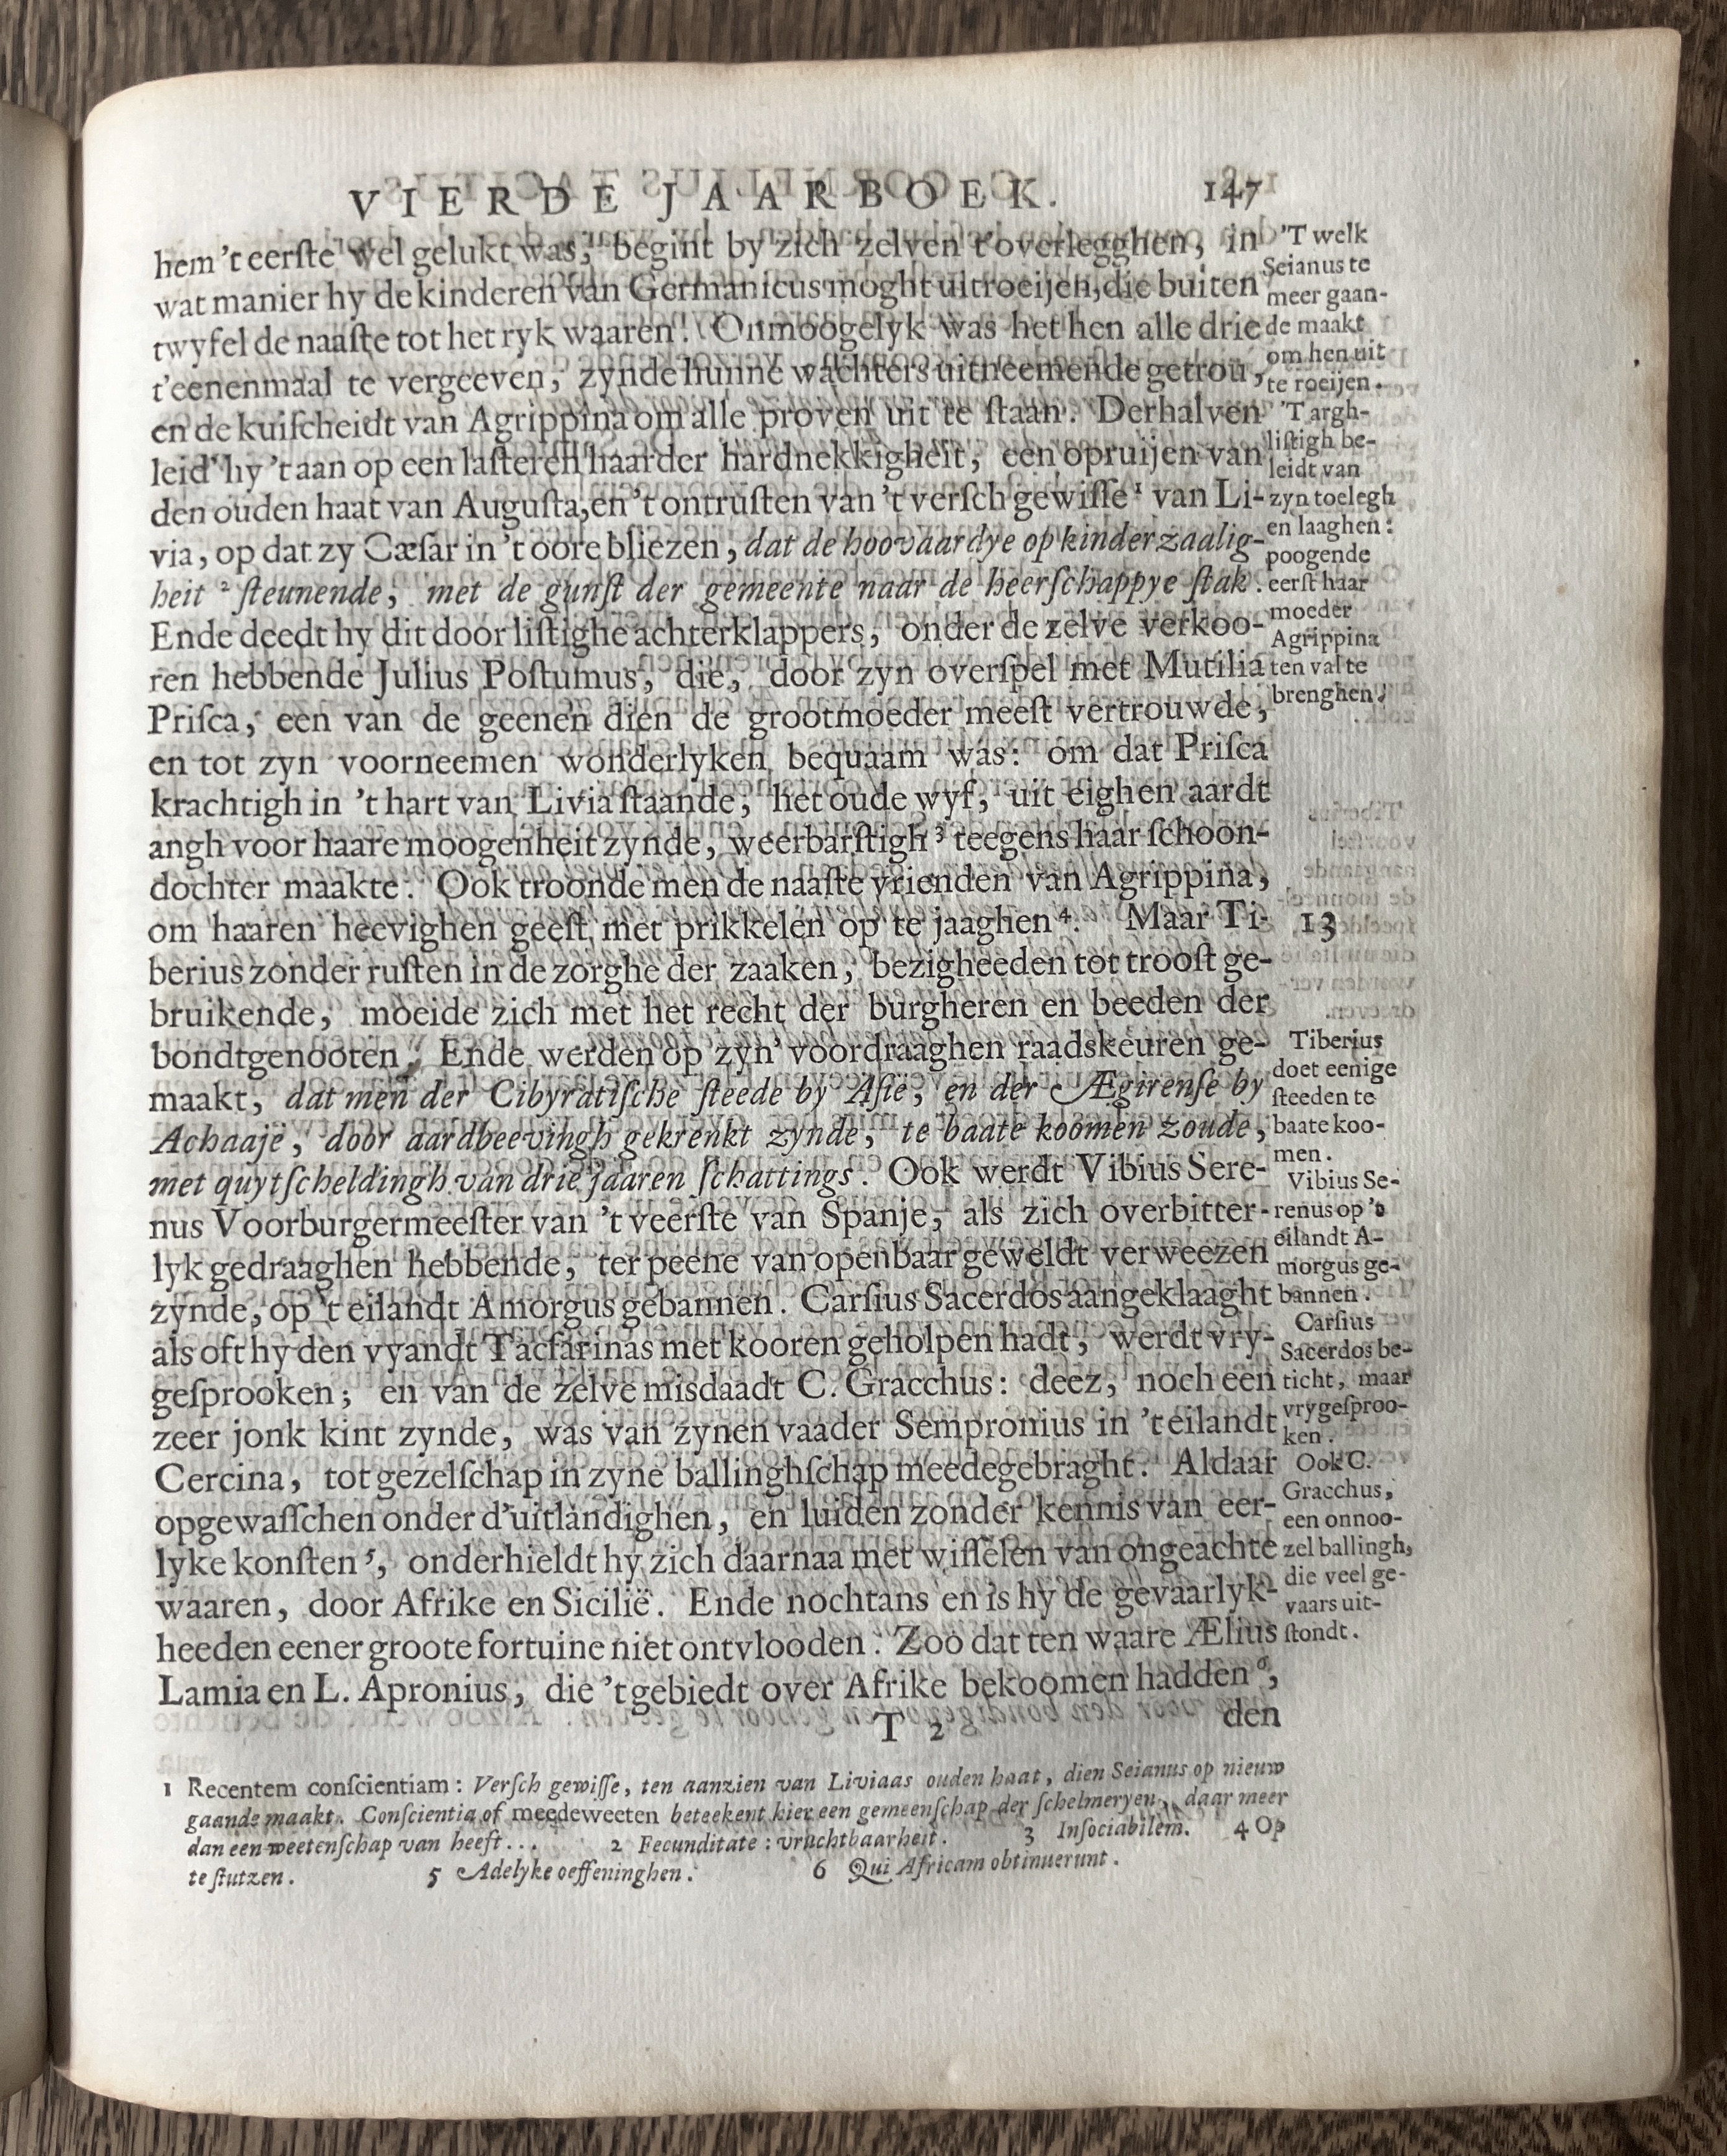 VIERDE JAARBOEK. 147
hem 't eerſte wel gelukt was, begint by zich zelven t'overlegghen, in
wat manier hy de kinderen van Germanicus moght uitroeijen, die buiten
twyfel de naaſte tot het ryk waaren. Onmoogelyk was het hen alle drie
t'eenenmaal te vergeeven, zynde hunne wachters uitneemende getrou,
en de kuiſcheidt van Agrippina om alle proven uit te ſtaan. Derhalven
leid' hy 't aan op een laſteren haarder hardnekkigheit, een opruijen van
den ouden haat van Auguſta, en 't ontruſten van 't verſch gewiſſe ¹ van Li-
via, op dat zy Cæſar in 't oore bliezen, dat de hoovaardye op kinderzaalig-
heit ² ſteunende, met de gunſt der gemeente naar de heerſchappye ſtak.
Ende deedt hy dit door liſtighe achterklappers, onder de zelve verkoo-
ren hebbende Julius Poſtumus, die, door zyn overſpel met Mutilia
Priſca, een van de geenen dien de grootmoeder meeſt vertrouwde,
en tot zyn voorneemen wonderlyken bequaam was: om dat Priſca
krachtigh in 't hart van Livia ſtaande, het oude wyf, uit eighen aardt
angh voor haare moogenheit zynde, weerbarſtigh ³ teegens haar ſchoon-
dochter maakte. Ook troonde men de naaſte vrienden van Agrippina,
om haaren heevighen geeſt met prikkelen op te jaaghen ⁴. Maar Ti-
berius zonder ruſten in de zorghe der zaaken, bezigheeden tot trooſt ge-
bruikende, moeide zich met het recht der burgheren en beeden der
bondtgenooten. Ende werden op zyn' voordraaghen raadskeuren ge-
maakt, dat men der Cibyratiſche ſteede by Aſië, en der Ægirenſe by
Achaajë, door aardbeevingh gekrenkt zynde, te baate koomen zoude,
met quytſcheldingh van drie jaaren ſchattings. Ook werdt Vibius Sere-
nus Voorburgermeeſter van 't veerſte van Spanje, als zich overbitter-
lyk gedraaghen hebbende, ter peene van openbaar geweldt verweezen
zynde, op 't eilandt Amorgus gebannen. Carſius Sacerdos aangeklaaght
als oft hy den vyandt Tacfarinas met kooren geholpen hadt, werdt vry-
geſprooken; en van de zelve misdaadt C. Gracchus: deez, noch een
zeer jonk kint zynde, was van zynen vaader Sempronius in 't eilandt
Cercina, tot gezelſchap in zyne ballinghſchap meedegebraght. Aldaar
opgewaſſchen onder d'uitlandighen, en luiden zonder kennis van eer-
lyke konſten ⁵, onderhieldt hy zich daarnaa met wiſſelen van ongeachte
waaren, door Afrike en Sicilië. Ende nochtans en is hy de gevaarlyk-
heeden eener groote fortuine niet ontvlooden. Zoo dat ten waare Ælius
Lamia en L. Apronius, die 't gebiedt over Afrike bekoomen hadden ⁶,
T 2 den
'T welk
Seianus te
meer gaan-
de maakt
om hen uit
te roeijen.
'T argh-
liſtigh be-
leidt van
zyn toelegh
en laaghen:
poogende
eerſt haar
moeder
Agrippina
ten val te
brenghen.
13
Tiberius
doet eenige
ſteeden te
baate koo-
men.
Vibius Se-
renus op 't
eilandt A-
morgus ge-
bannen.
Carſius
Sacerdos be-
ticht, maar
vrygeſproo-
ken.
Ook C.
Gracchus,
een onnoo-
zel ballingh,
die veel ge-
vaars uit-
ſtondt.
1 Recentem conſcientiam: Verſch gewiſſe, ten aanzien van Liviaas ouden haat, dien Seianus op nieuw
gaande maakt. Conſcientia of meedeweeten beteekent hier een gemeenſchap der ſchelmeryen, daar meer
dan een weetenſchap van heeft... 2 Fecunditate: vruchtbaarheit. 3 Inſociabilem. 4 Op
te ſtutzen. 5 Adelyke oeffeninghen. 6 Qui Africam obtinuerunt.